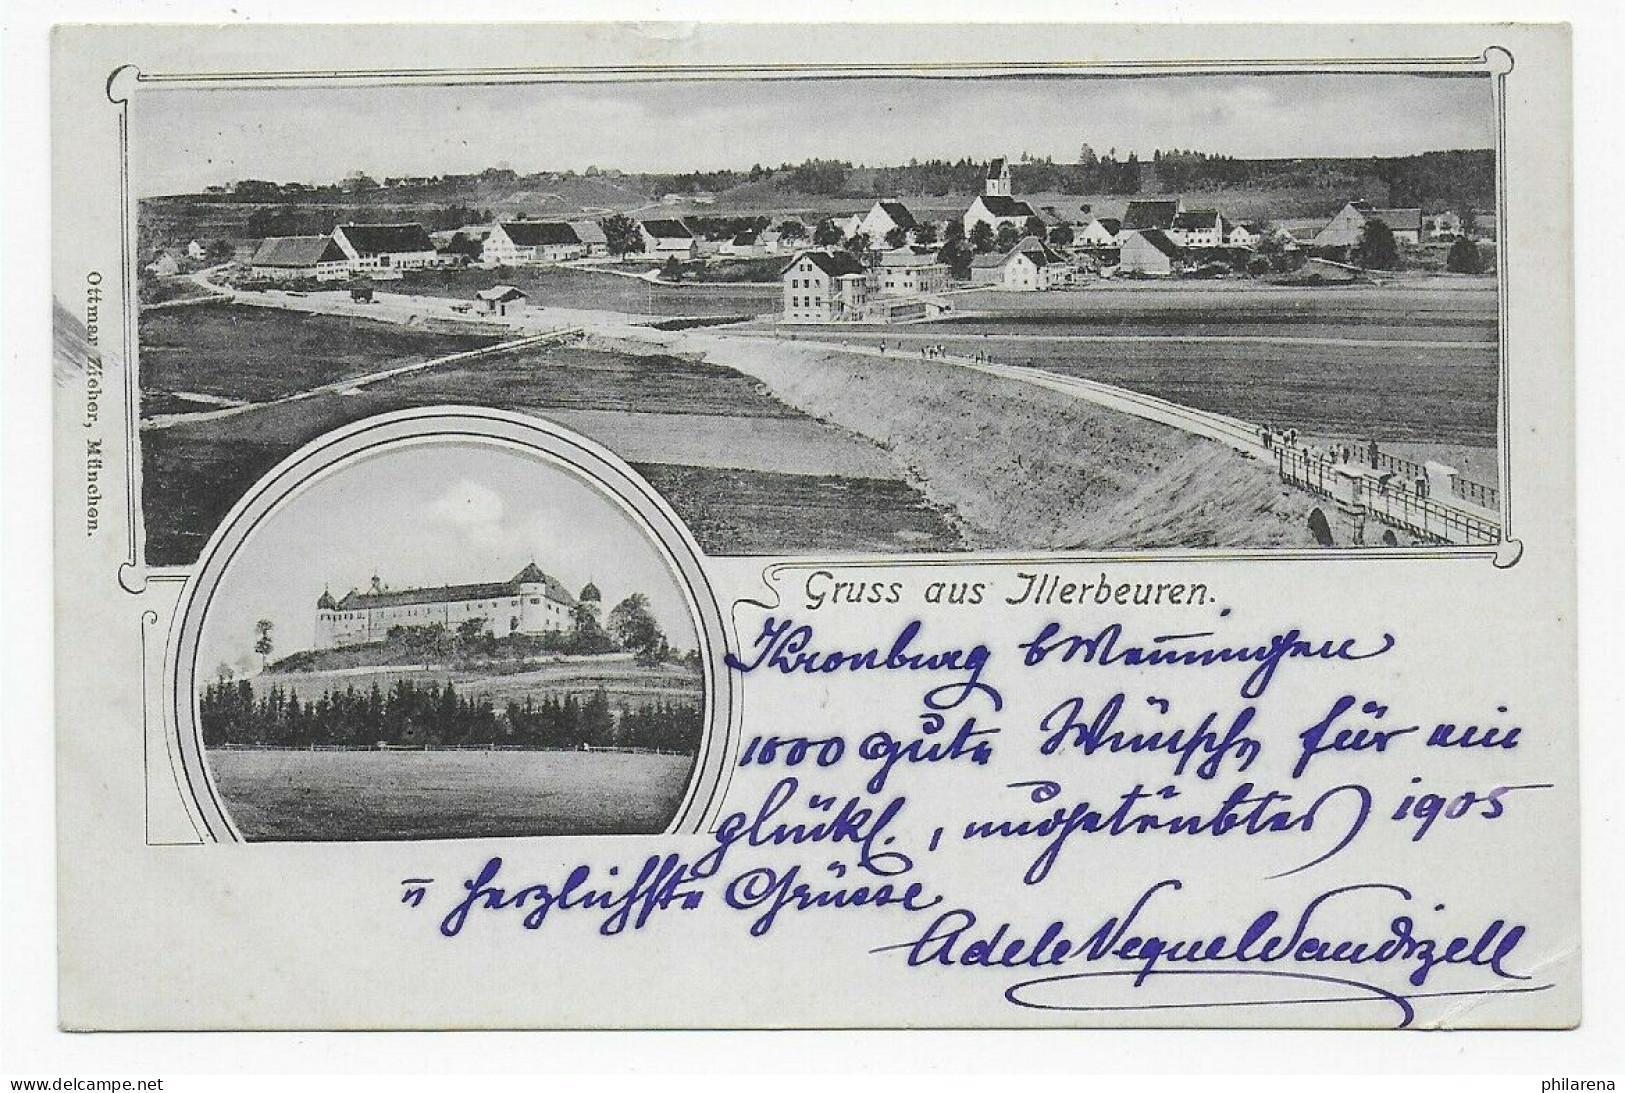 Gruss aus Illerbeuren.
Ottmar Zieher, München.
Kronburg b Memmingen
1000 gute Wünsche für ein
glückl., ungetrübtes 1905
u herzlichste Grüsse
Adele Vequel Wandizell
www.delcampe.net
philarena